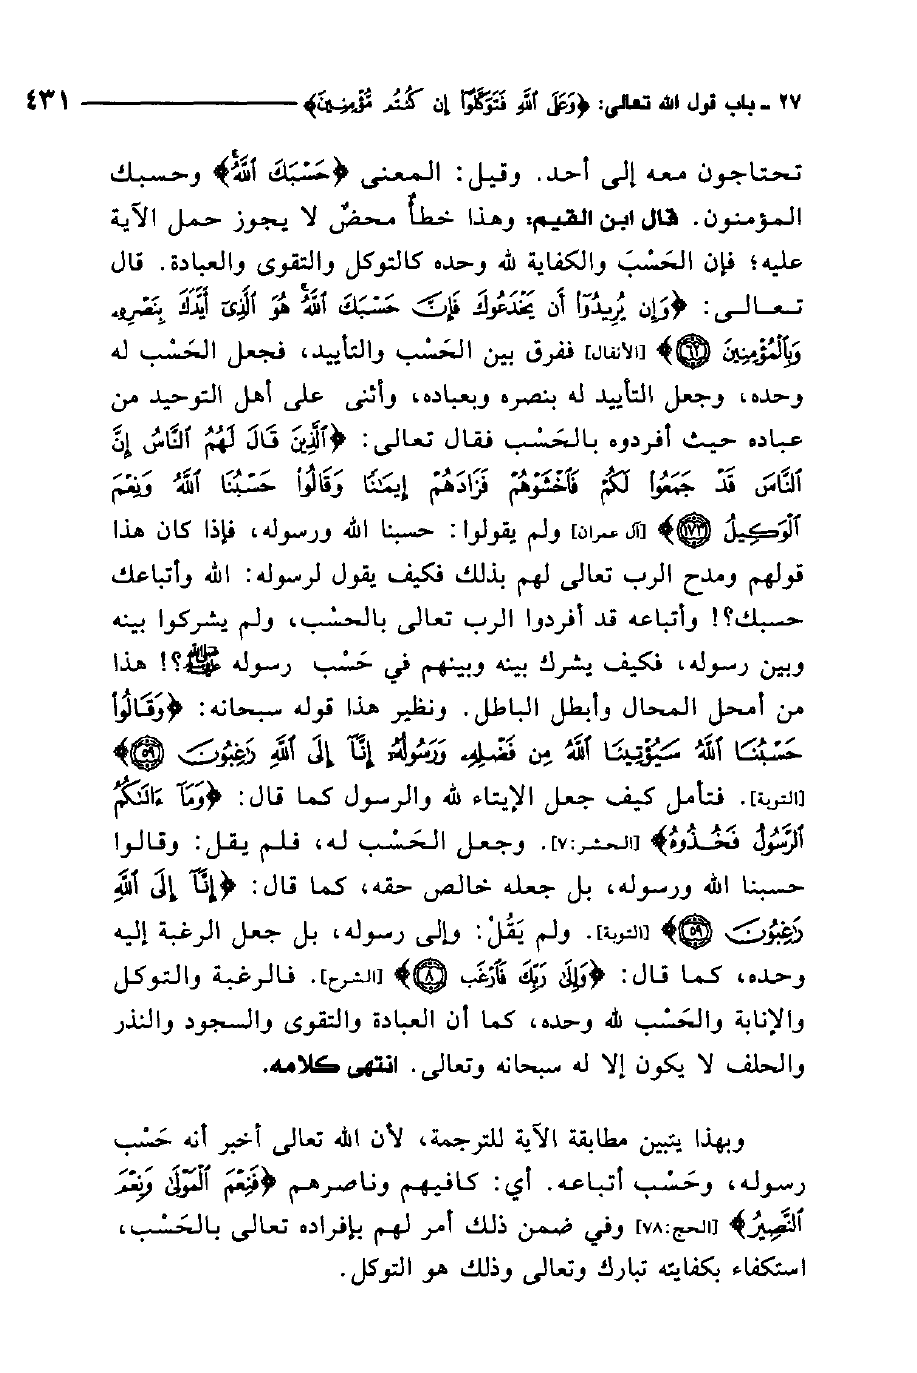 ٢٧ - باب قول الله تعالى: ﴿وَعَلَى ٱللَّهِ فَتَوَكَّلُوٓا۟ إِن كُنتُم مُّؤْمِنِينَ﴾ ٤٣١
تحتاجون معه إلى أحد. وقيل: المعنى ﴿حَسْبُكَ ٱللَّهُ﴾ وحسبك
المؤمنون. قال ابن القيم: وهذا خطأٌ محضٌ لا يجوز حمل الآية
عليه؛ فإن الحَسْبَ والكفاية لله وحده كالتوكل والتقوى والعبادة. قال
تعالى: ﴿وَإِن يُرِيدُوٓا۟ أَن يَخْدَعُوكَ فَإِنَّ حَسْبَكَ ٱللَّهُ هُوَ ٱلَّذِىٓ أَيَّدَكَ بِنَصْرِهِۦ
وَبِٱلْمُؤْمِنِينَ ٦٢﴾ [الأنفال] ففرق بين الحَسْب والتأييد، فجعل الحَسْب له
وحده، وجعل التأييد له بنصره وبعباده، وأثنى على أهل التوحيد من
عباده حيث أفردوه بالحَسْب فقال تعالى: ﴿ٱلَّذِينَ قَالَ لَهُمُ ٱلنَّاسُ إِنَّ
ٱلنَّاسَ قَدْ جَمَعُوا۟ لَكُمْ فَٱخْشَوْهُمْ فَزَادَهُمْ إِيمَـٰنًا وَقَالُوا۟ حَسْبُنَا ٱللَّهُ وَنِعْمَ
ٱلْوَكِيلُ ١٧٣﴾ [آل عمران] ولم يقولوا: حسبنا الله ورسوله، فإذا كان هذا
قولهم ومدح الرب تعالى لهم بذلك فكيف يقول لرسوله: الله وأتباعك
حسبك؟! وأتباعه قد أفردوا الرب تعالى بالحسْب، ولم يشركوا بينه
وبين رسوله، فكيف يشرك بينه وبينهم في حَسْب رسوله ﷺ؟! هذا
من أمحل المحال وأبطل الباطل. ونظير هذا قوله سبحانه: ﴿وَقَالُوا۟
حَسْبُنَا ٱللَّهُ سَيُؤْتِينَا ٱللَّهُ مِن فَضْلِهِۦ وَرَسُولُهُۥٓ إِنَّآ إِلَى ٱللَّهِ رَٰغِبُونَ ٥٩﴾
[التوبة]. فتأمل كيف جعل الإيتاء لله والرسول كما قال: ﴿وَمَآ ءَاتَىٰكُمُ
ٱلرَّسُولُ فَخُذُوهُ﴾ [الحشر:٧]. وجعل الحَسْب له، فلم يقل: وقالوا
حسبنا الله ورسوله، بل جعله خالص حقه، كما قال: ﴿إِنَّآ إِلَى ٱللَّهِ
رَٰغِبُونَ ٥٩﴾ [التوبة]. ولم يَقُلْ: وإلى رسوله، بل جعل الرغبة إليه
وحده، كما قال: ﴿وَإِلَىٰ رَبِّكَ فَٱرْغَب ٨﴾ [الشرح]. فالرغبة والتوكل
والإنابة والحَسْب لله وحده، كما أن العبادة والتقوى والسجود والنذر
والحلف لا يكون إلا له سبحانه وتعالى. انتهى كلامه.
وبهذا يتبين مطابقة الآية للترجمة، لأن الله تعالى أخبر أنه حَسْب
رسوله، وحَسْب أتباعه. أي: كافيهم وناصرهم ﴿فَنِعْمَ ٱلْمَوْلَىٰ وَنِعْمَ
ٱلنَّصِيرُ﴾ [الحج:٧٨] وفي ضمن ذلك أمر لهم بإفراده تعالى بالحَسْب،
استكفاء بكفايته تبارك وتعالى وذلك هو التوكل.